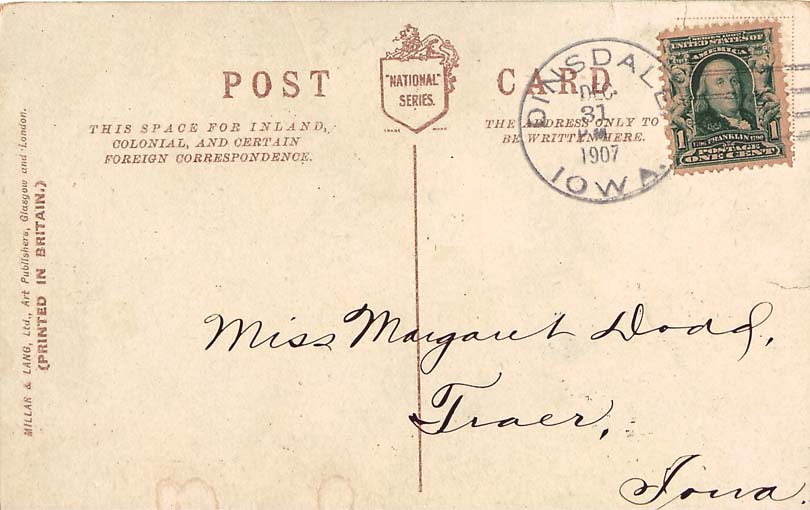 POST CARD
"NATIONAL"
SERIES.
TRADE MARK
THIS SPACE FOR INLAND,
COLONIAL, AND CERTAIN
FOREIGN CORRESPONDENCE.
THE ADDRESS ONLY TO
BE WRITTEN HERE.
DINSDALE
DEC.
31
P.M.
1907
IOWA.
SERIES 1902
UNITED STATES OF
AMERICA
1 FRANKLIN 1
POSTAGE
ONE CENT
MILLAR & LANG, Ltd., Art Publishers, Glasgow and London.
(PRINTED IN BRITAIN.)
Miss Margaret Dodd,
Traer,
Iowa.